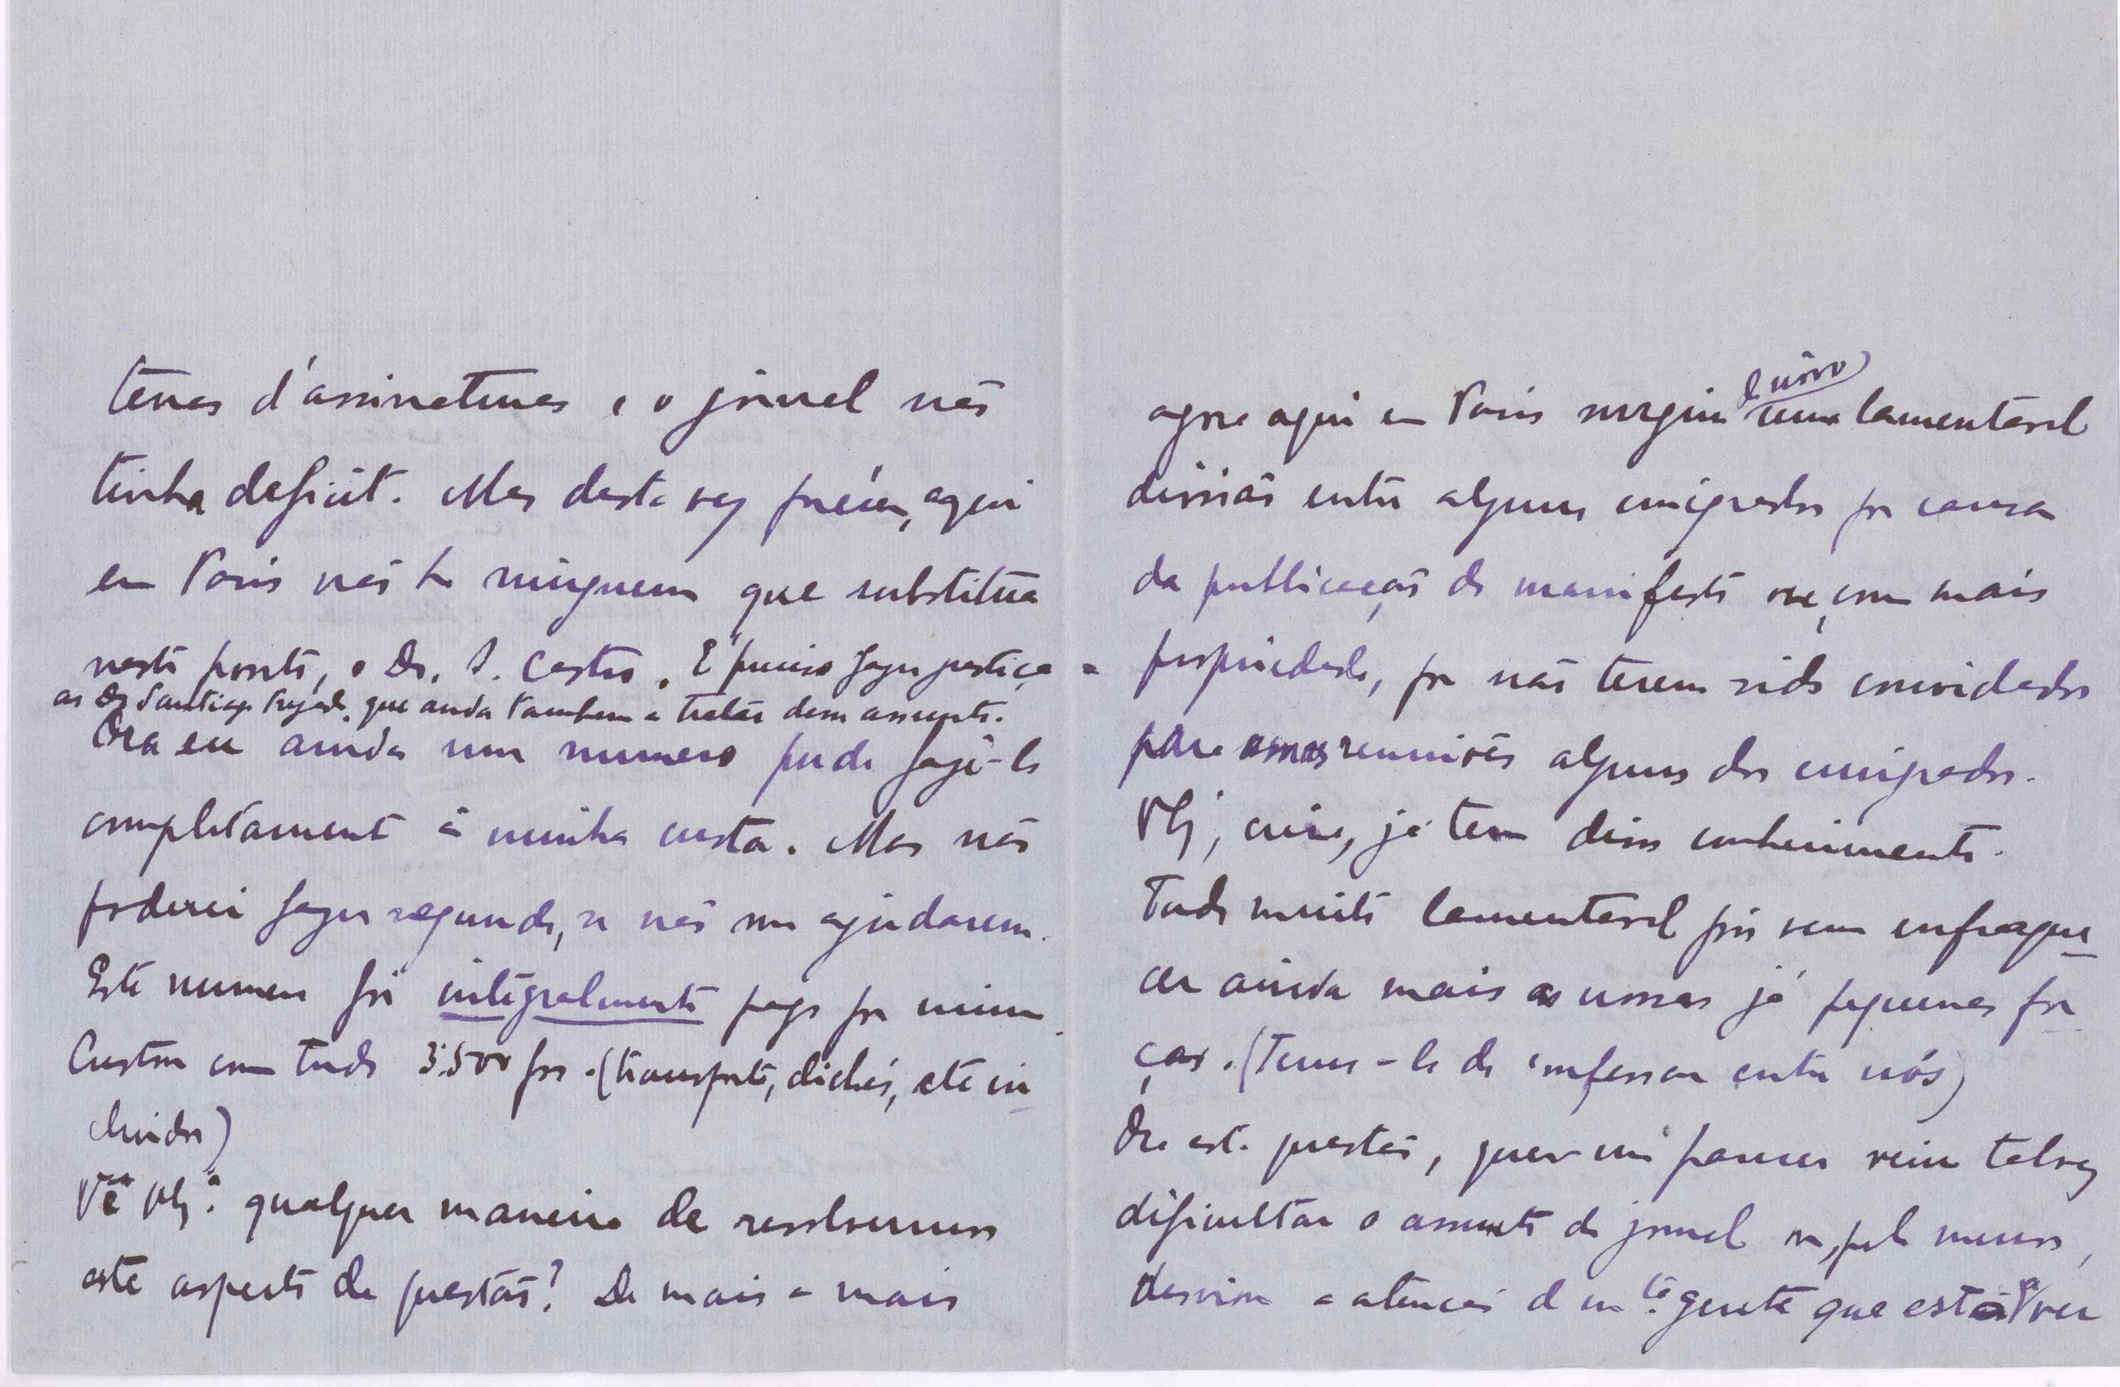 d'assinaturas e o jornal não
tinha deficit. Mas desta vez porém, aqui
em Paris não ha ninguem que substitua
neste ponto, o Dr. S. Castro. É preciso fazer justiça
ao Dr Santiago Prezado, que anda tambem a tratar dum assunto.
Ora eu ainda um numero pude fazê-lo
completamente á minha custa. Mas não
poderei fazer segundo, se não me ajudarem.
Este numero foi integralmente pago por mim.
Custou com tudo 3.500 frs. (transporte, clichés, etc in-
cluidos)
Vê VEj.ª qualquer maneira de resolvermos
este aspecto da questão? De mais a mais
agora aqui em Paris surgiu de novo uma lamentavel
divisão entre alguns emigrados por causa
da publicação do manifesto ou, com mais
propriedade, por não terem sido convidados
para reuniões alguns dos emigrados.
creio, já tem disso conhecimento.
Tudo muito lamentavel pois vem enfraque-
cer ainda mais as nossas já pequenas for-
ças. (Temos-lo de confessar entre nós)
Ora esta questão, quer-me parecer veiu talvez
dificultar o assunto do jornal ou, pelo menos,
desviar a atenção d'em.ta gente que está a ver